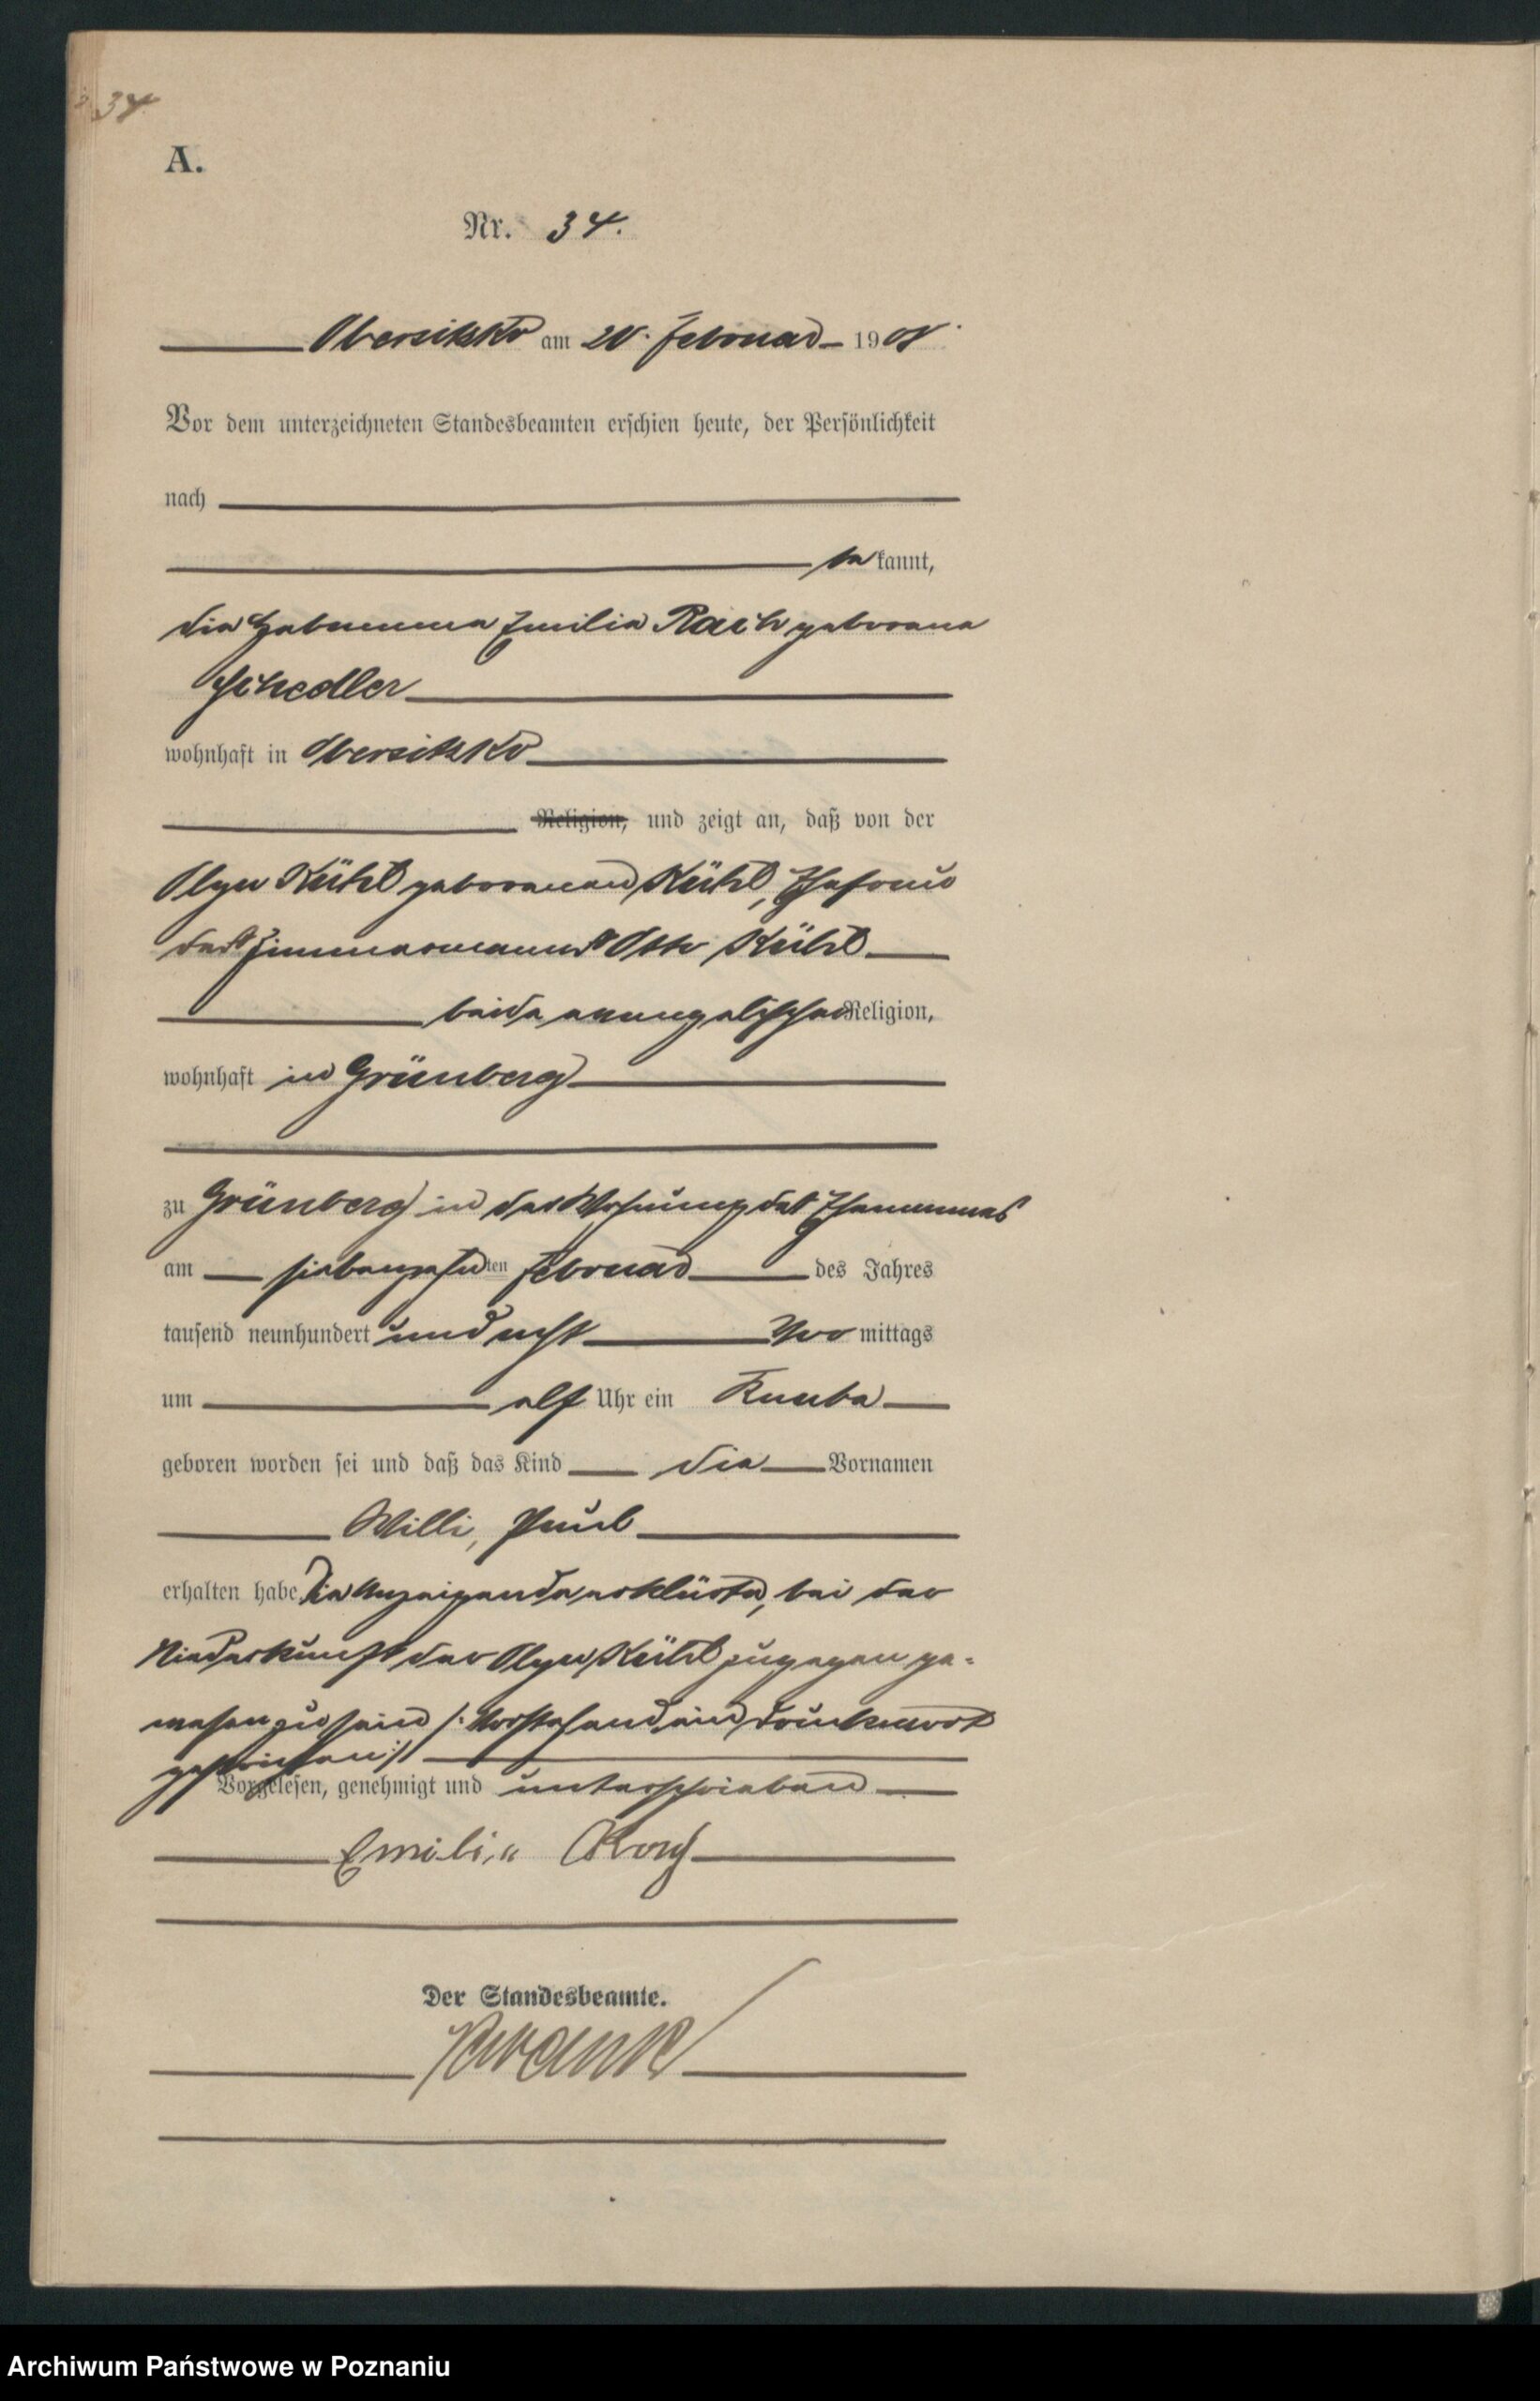 34.
A.
Nr. 34.
Obersitzko am 20. Februar 1908.
Vor dem unterzeichneten Standesbeamten erschien heute, der Persönlichkeit
nach
be kannt,
die Hebamme Emilie Rach geborene
Schedler
wohnhaft in Obersitzko
Religion, und zeigt an, daß von der
Olga Kühl geborenen Kühl, Ehefrau
des Zimmermanns Otto Kühl
beide evangelischer Religion,
wohnhaft in Grünberg
zu Grünberg in der Wohnung des Ehemannes
am siebenzehnten Februar des Jahres
tausend neunhundert und acht Vor mittags
um elf Uhr ein Knabe
geboren worden sei und daß das Kind die Vornamen
Willi, Paul
erhalten habe. Die Anzeigende erklärte, bei der
Niederkunft der Olga Kühl zugegen ge-
wesen zu sein /: Vorstehend ein Druckwort
gestrichen :/
Vorgelesen, genehmigt und unterschrieben
Emilie Rach
Der Standesbeamte.
Archiwum Państwowe w Poznaniu